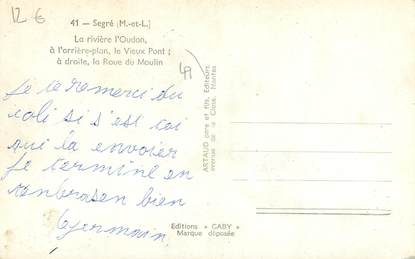 12 €
41 — Segré (M.-et-L.)
La rivière l'Oudon,
à l'arrière-plan, le Vieux Pont ;
à droite, la Roue du Moulin
49
Je te remerci du
coli si s'est toi
qui la envoier
Je termine en
tenbrasen bien
Germain
ARTAUD père et fils, Editeurs
avenue de la Close, Nantes
Editions « GABY »
Marque déposée